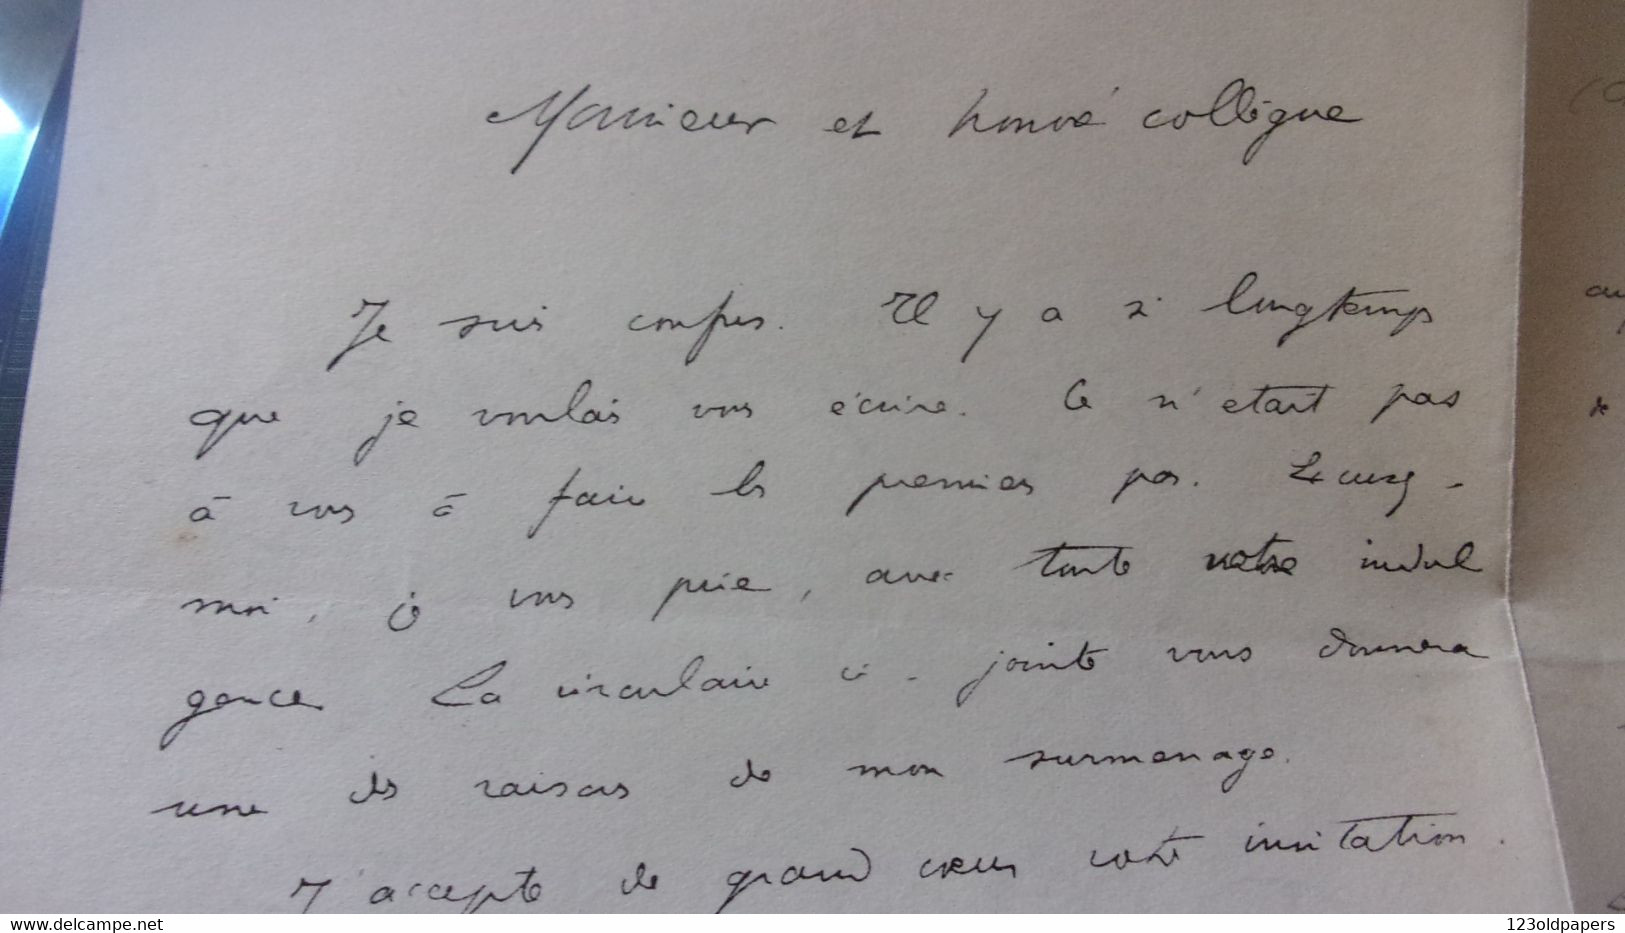 Monsieur et honoré collègue
Je suis confus. Il y a si longtemps
que je voulais vous écrire. Ce n'etait pas
à vous à faire les premiers pas. Excusez-
moi, je vous prie, avec toute votre indul
gence. La circulaire ci-jointe vous donnera
une des raisons de mon surmenage.
J'accepte de grand cœur votre invitation.
www.delcampe.net
123oldpapers